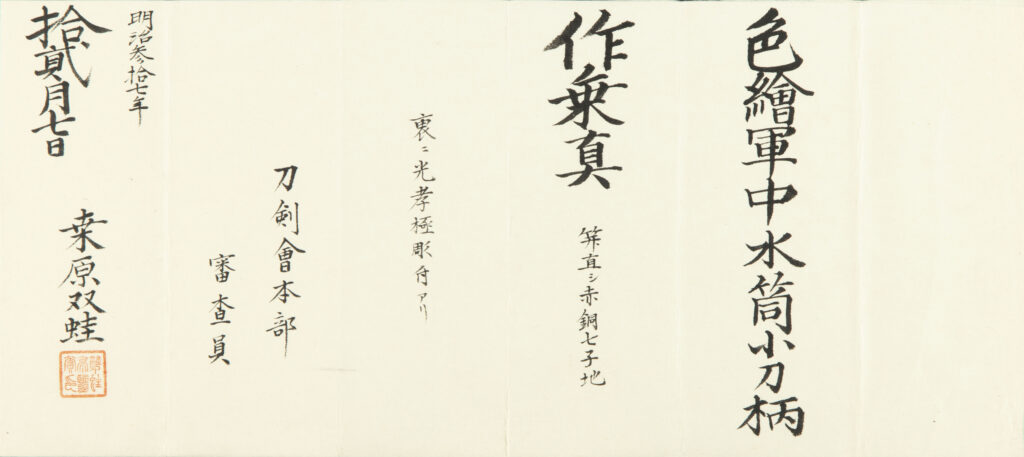 色繪軍中水筒小刀柄
作乗真
笄直シ赤銅七子地
裏ニ光孝極彫付アリ
刀剣會本部
審査員
明治参拾七年
拾貳月七日
桒原双蛙